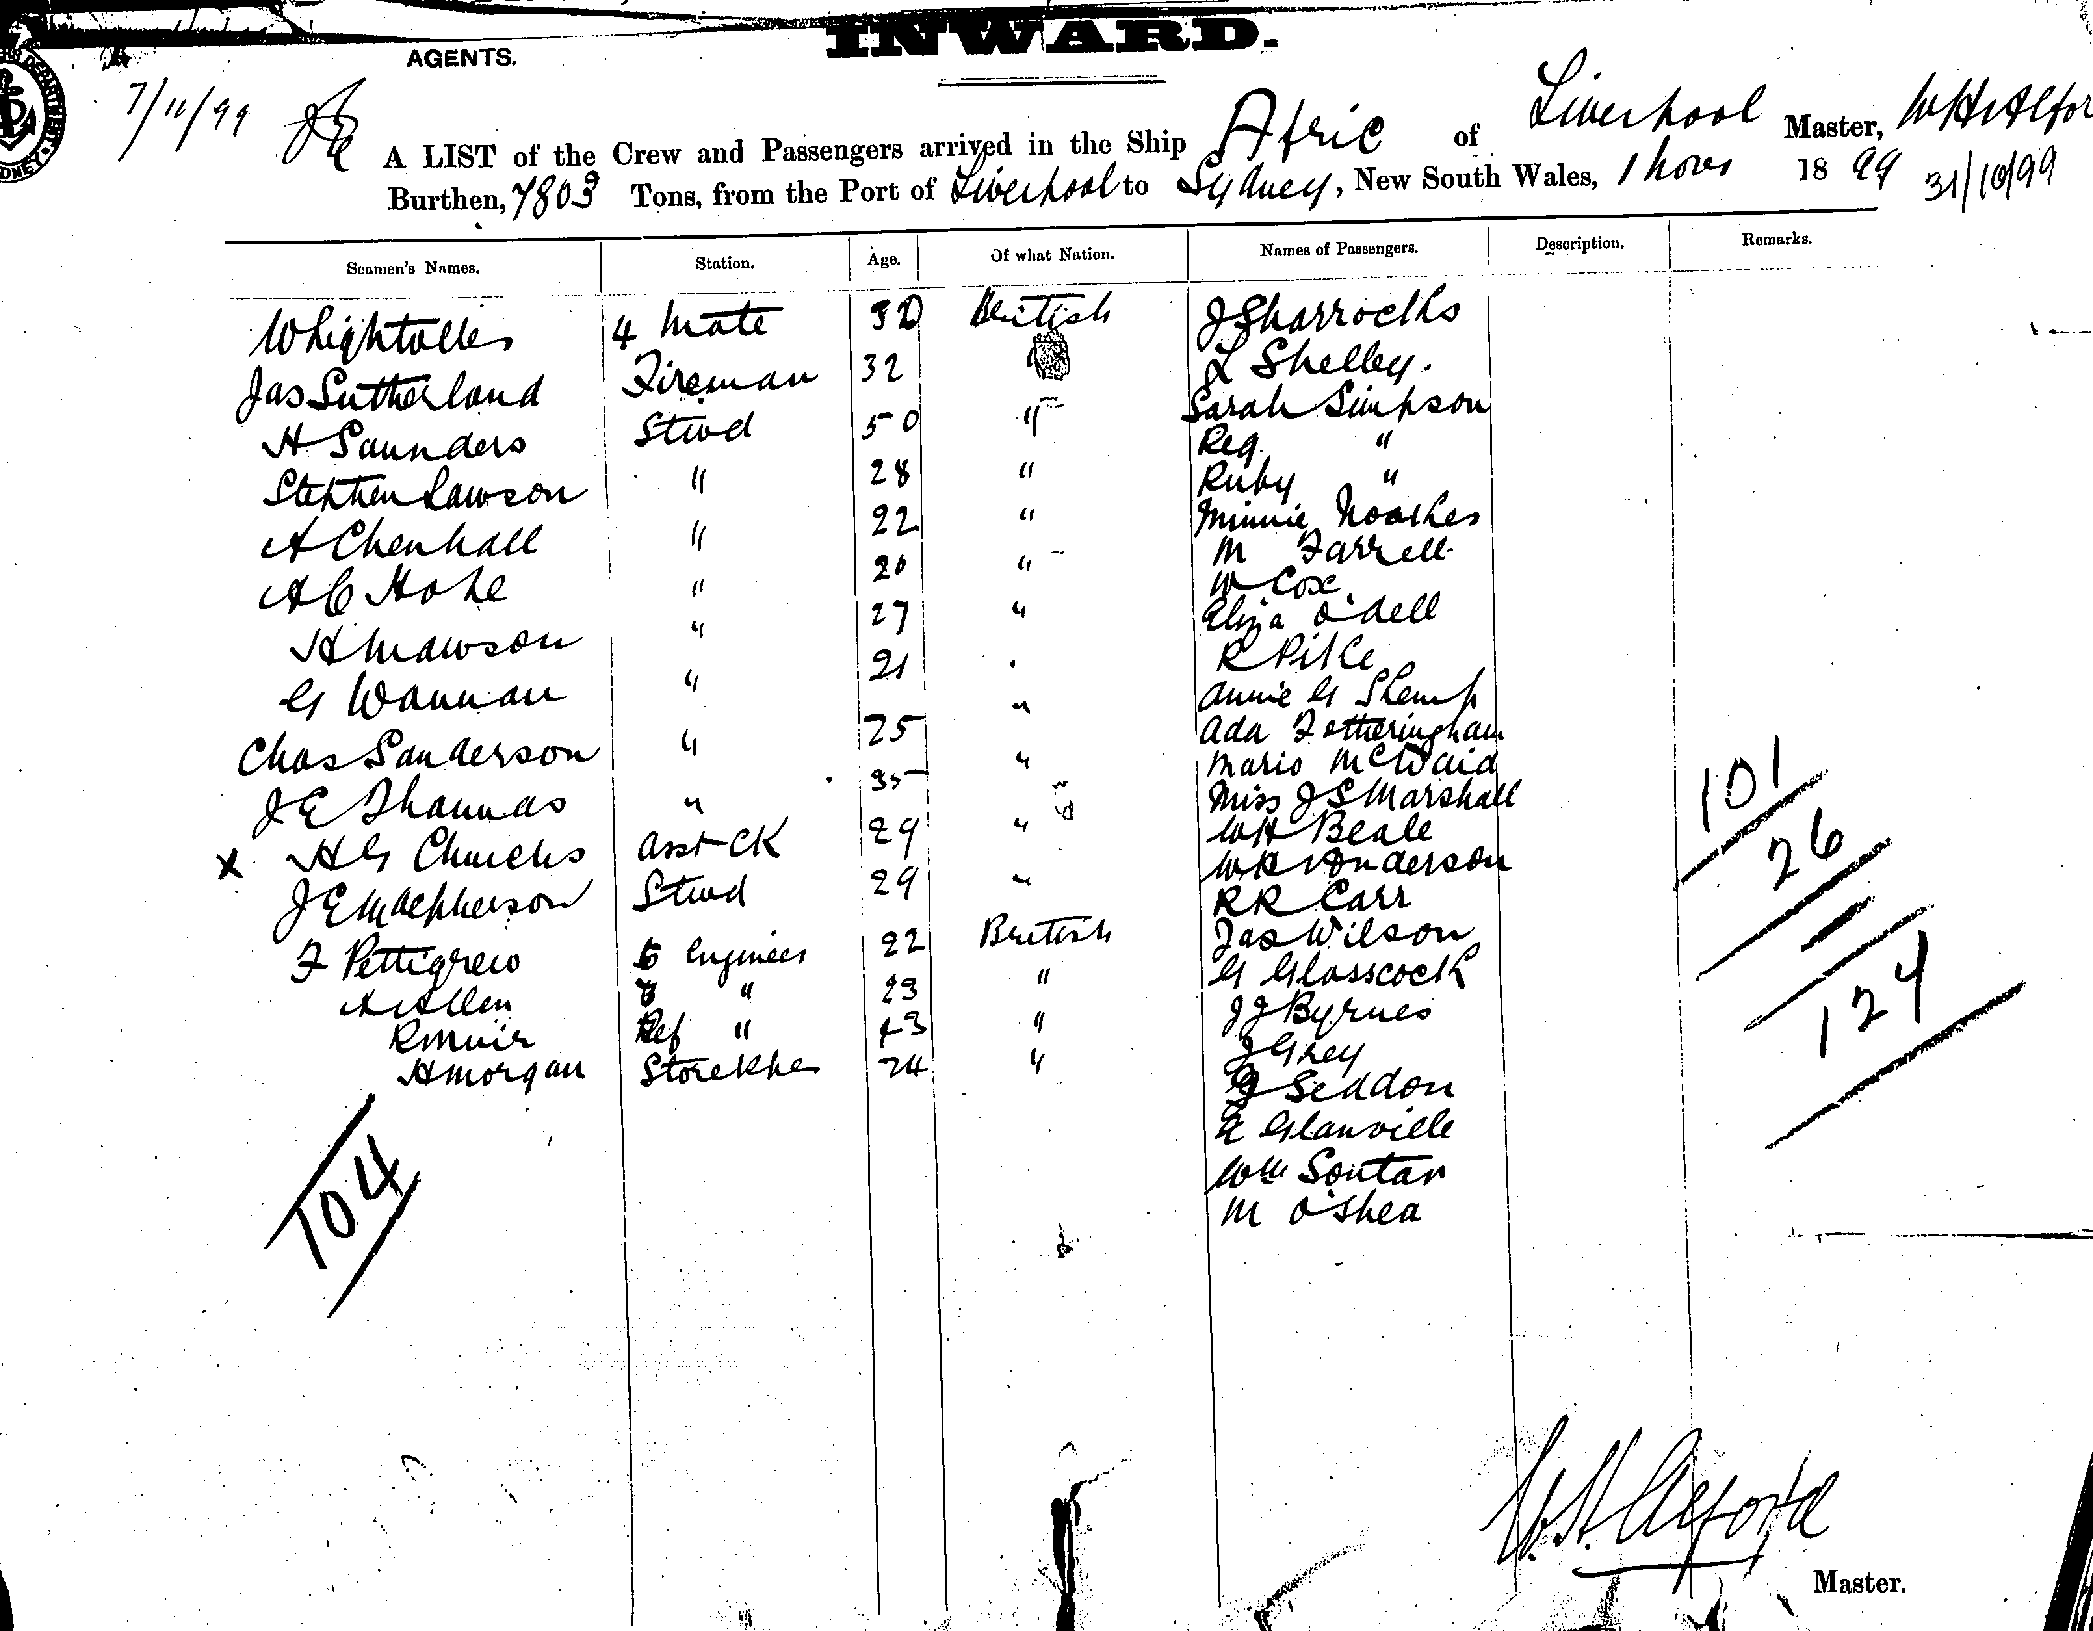 INWARD.
AGENTS.
7/11/99
A LIST of the Crew and Passengers arrived in the Ship Afric of Liverpool Master, W H Alfor
Burthen, 7803 Tons, from the Port of Liverpool to Sydney, New South Wales, 1 Nov 1899 31/10/99
Seamen's Names. Station. Age. Of what Nation. Names of Passengers. Description. Remarks.
4 Mate British J Sharrocks
Jas Sutherland Fireman 32 L Shelley.
H Saunders Stwd 50 " Sarah Simpson
Stephen Lawson " 28 " Reg "
A Chenhall " 22 " Ruby "
A C " 20 " Minnie
H Mawson " 27 " M Farrell
G Wannan " 21 W Cox
Chas Sanderson " 25 " Eliza O'dell
J E Thomas " 35 " R Pike
x H G Asst Ck 29 " Annie G
J E Macpherson Stwd 29 " Ada Fotheringham
F Pettigrew Engineer 22 British McWaid
A Allen " 23 " Miss J S Marshall
R Muir Ref " 43 " W H Beale
H Morgan Storekpe 24 " W R Anderson
R R Carr
Jas Wilson
G Glasscock
J J Byrnes
J Grey
J Seddon
E Glanville
Wm Soutar
M O'Shea
101
26
124
104
W.H. Alford
Master.